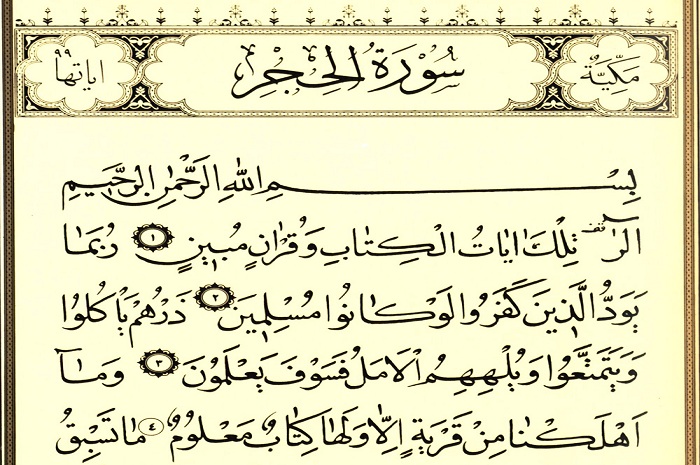 مَكِّيَّةٌ سُورَةُ الْحِجْرِ اٰيَاتُهَا ٩٩
بِسْمِ اللّٰهِ الرَّحْمٰنِ الرَّحِيمِ
الٓرٰ۠ قف تِلْكَ اٰيَاتُ الْكِتَابِ وَقُرْاٰنٍ مُبٖينٍ ﴿١﴾ رُبَمَا
يَوَدُّ الَّذٖينَ كَفَرُوا لَوْ كَانُوا مُسْلِمٖينَ ﴿٢﴾ ذَرْهُمْ يَأْكُلُوا
وَيَتَمَتَّعُوا وَيُلْهِهِمُ الْاَمَلُ فَسَوْفَ يَعْلَمُونَ ﴿٣﴾ وَمَٓا
اَهْلَكْنَا مِنْ قَرْيَةٍ اِلَّا وَلَهَا كِتَابٌ مَعْلُومٌ ﴿٤﴾ مَا تَسْبِقُ